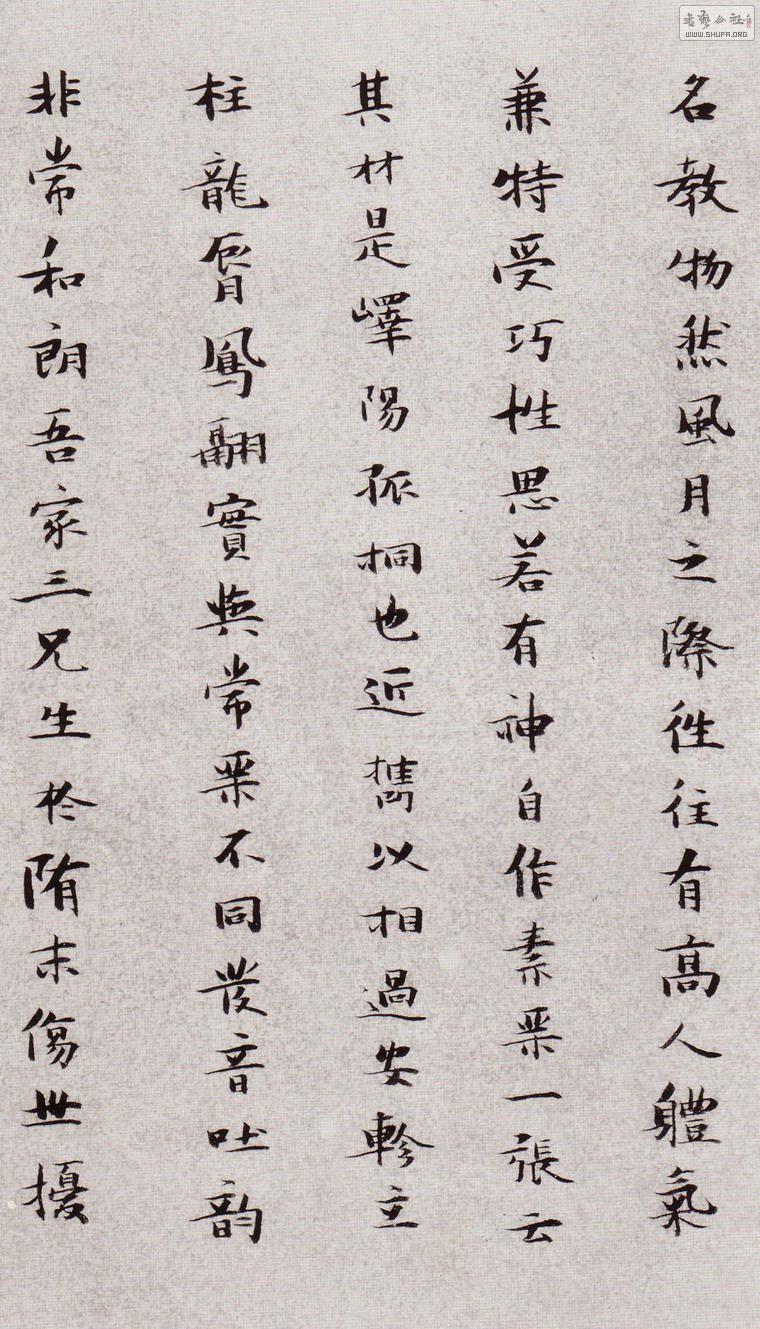 名教物然風月之際往往有高人體氣
兼特受巧性思若有神自作素琴一張云
其材是嶧陽孤桐也近攜以相過安軫立
柱龍脣鳳翮實與常琴不同發音吐韵
非常和朗吾家三兄生於隋末傷世擾
WWW.SHUFA.ORG